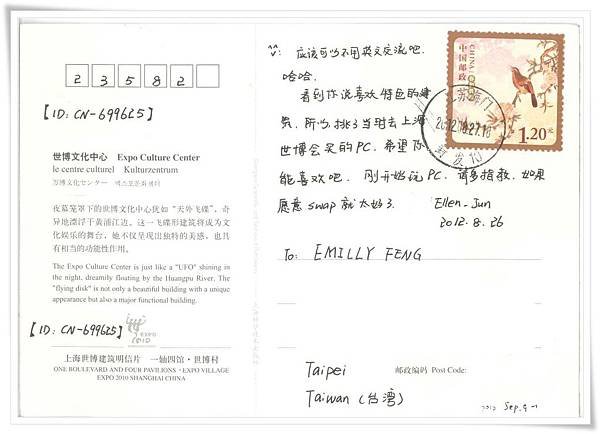 2 3 5 8 2
【ID: CN-699625】
世博文化中心 Expo Culture Center
le centre culturel Kulturzentrum
万博文化センター 엑스포문화센터
夜幕笼罩下的世博文化中心犹如“天外飞碟”，奇
异地漂浮于黄浦江边。这一飞碟形建筑将成为文
化娱乐的舞台，她不仅呈现出独特的美感，也具
有相当的功能性作用。
The Expo Culture Center is just like a "UFO" shining in
the night, dreamily floating by the Huangpu River. The
"flying disk" is not only a beautiful building with a unique
appearance but also a major functional building.
【ID: CN-699625】
EXPO
2010
上海世博建筑明信片 一轴四馆·世博村
ONE BOULEVARD AND FOUR PAVILIONS · EXPO VILLAGE
EXPO 2010 SHANGHAI CHINA
应该可以不用英文交流吧.
哈哈.
看到你说喜欢特色的建
筑, 所以挑了当时去上海
世博会买的PC. 希望你
能喜欢吧. 刚开始玩PC. 请多指教. 如果
愿意swap就太好了. Ellen-Jun
2012.8.26
中国邮政
CHINA
1.20元
江苏海门
2012.08.27.16
To: EMILLY FENG
Taipei
邮政编码 Post Code:
Taiwan (台湾)
2012 Sep. 4